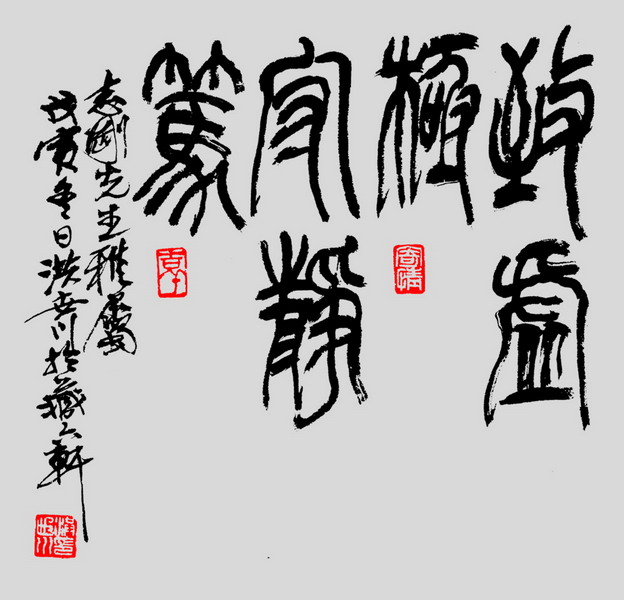 致虛
極
守靜
篤
志剛先生雅屬
戊寅冬日洪於藏六軒